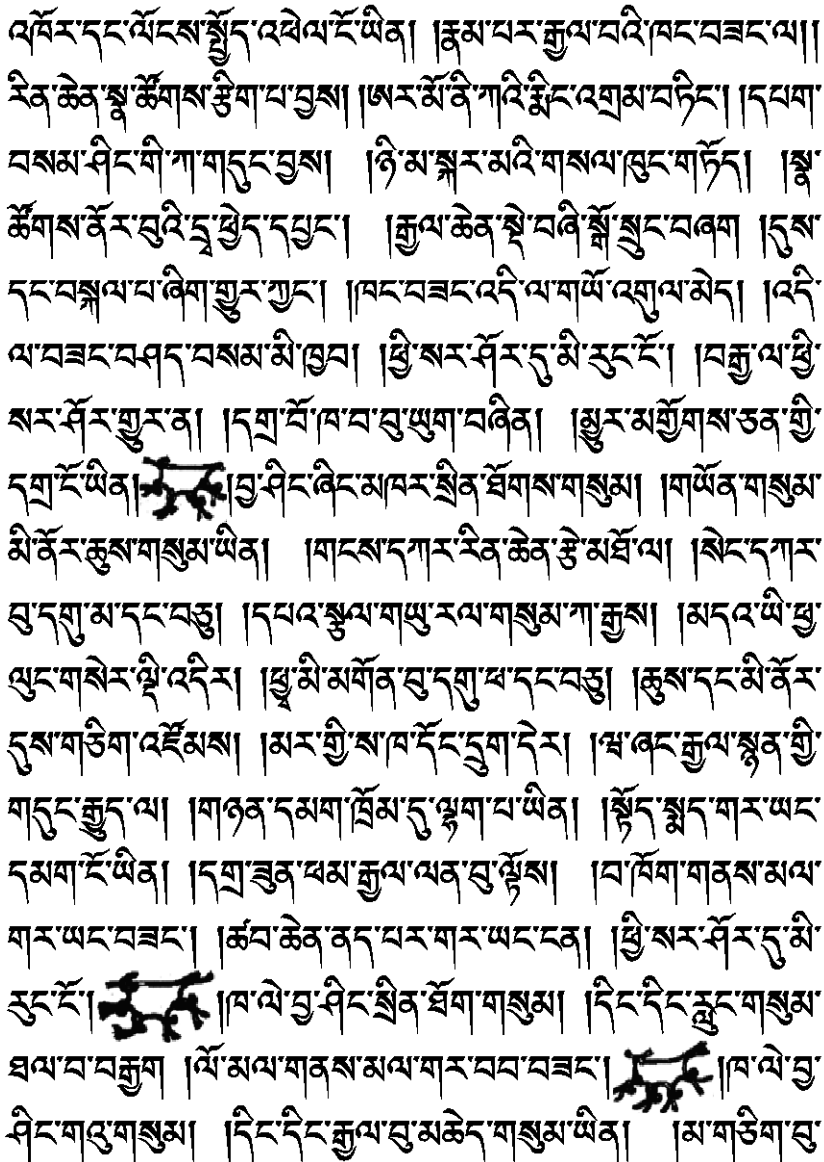 འཁོར་དང་ལོངས་སྤྱོད་འཕེལ་ངོ་ཡིན། །རྣམ་པར་རྒྱལ་བའི་ཁང་བཟང་ལ།།
རིན་ཆེན་སྣ་ཚོགས་རྩིག་པ་བྱས། །ཨར་མོ་ནི་ཀའི་རྨིང་འགྲམ་བཏིང་། །དཔག་
བསམ་ཤིང་གི་ཀ་གདུང་བྱས། །ཉི་མ་སྐར་མའི་གསལ་ཁུང་གཏོད། །སྣ་
ཚོགས་ནོར་བུའི་དྲྭ་ཕྱེད་དཔྱང་། །རྒྱལ་ཆེན་སྡེ་བཞི་སྒོ་སྲུང་བཞག །དུས་
དང་བསྐལ་པ་ཞིག་གྱུར་ཀྱང་། །ཁང་བཟང་འདི་ལ་གཡོ་འགུལ་མེད། །འདི་
ལ་བཟང་བཤད་བསམ་མི་ཁྱབ། །ཕྱི་སར་ཤོར་དུ་མི་རུང་ངོ་། །བརྒྱ་ལ་ཕྱི་
སར་ཤོར་གྱུར་ན། །དགྲ་བོ་ཁ་བ་བུ་ཡུག་བཞིན། །མྱུར་མགྱོགས་ཅན་གྱི་
དགྲ་ངོ་ཡིན། །བྱ་ཤིང་ཞིང་མཁར་སྲིན་ཐོགས་གསུམ། །གཡོན་གསུམ་
མི་ནོར་ཆུས་གསུམ་ཡིན། །གངས་དཀར་རིན་ཆེན་རྩེ་མཐོ་ལ། །སེང་དཀར་
བུ་དགུ་མ་དང་བཅུ། །དཔའ་སྟལ་གཡུ་རལ་གསུམ་ཀ་རྒྱས། །མདའ་ཡི་ཕྱྭ་
ལུང་གསེར་ལྡི་འདིར། །ཕྱྭ་མི་མགོན་བུ་དགུ་ཕ་དང་བཅུ། །ཆུས་དང་མི་ནོར་
དུས་གཅིག་འཛོམས། །མར་གྱི་ས་ཁ་དོང་དྲུག་དེར། །ཝ་ཞང་རྒྱལ་སྙན་གྱི་
གདུང་རྒྱུད་ལ། །གཉན་དམག་ཁྲོམ་དུ་ལྷག་པ་ཡིན། །སྟོད་སྨད་གར་ཡང་
དམག་ངོ་ཡིན། །དགྲ་ཟུན་ཕམ་རྒྱལ་ལན་བུ་ལྟོས། །བ་ཁོག་གནས་མལ་
གར་ཡང་བཟང་། །ཚབ་ཆེན་ནད་པར་གར་ཡང་ངན། །ཕྱི་སར་ཤོར་དུ་མི་
རུང་ངོ་། །ཁ་ལེ་བྱ་ཤིང་སྲིན་ཐོག་གསུམ། །དིང་དིང་རླུང་གསུམ་
ཐལ་བ་བརྒྱག །ལོ་མལ་གནས་མལ་གར་བབ་བཟང་། །ཁ་ལེ་བྱ་
ཤིང་གའུ་གསུམ། །དིང་དིང་རྒྱལ་བུ་མཆེད་གསུམ་ཡིན། །མ་གཅིག་བུ་